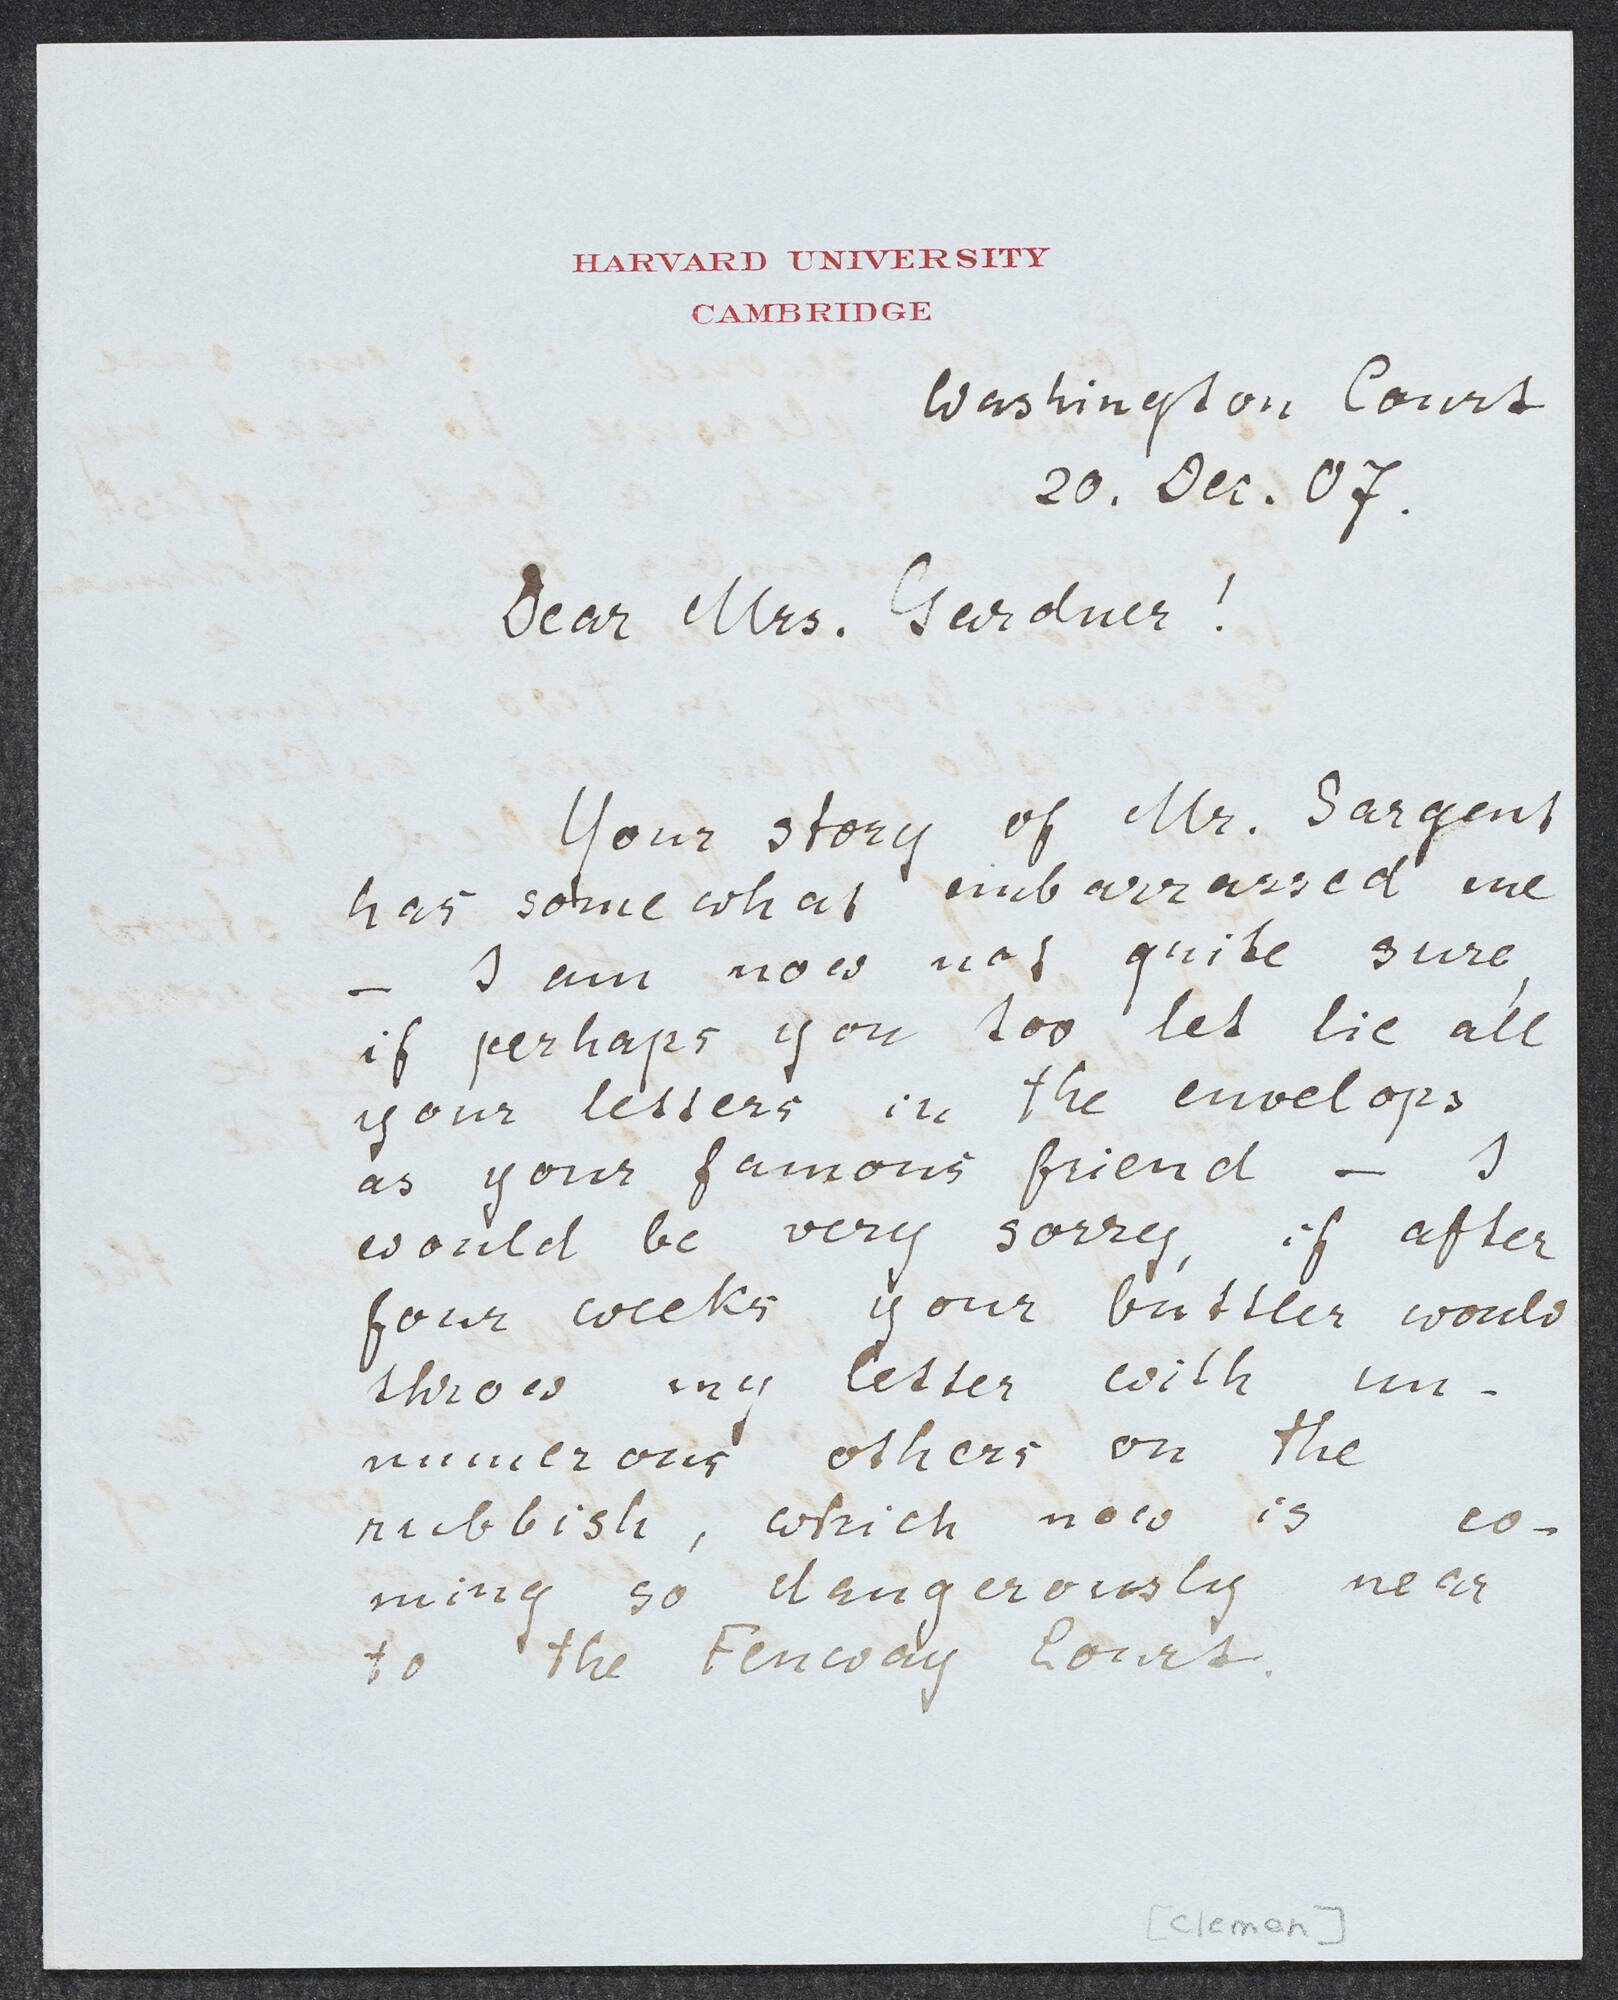 HARVARD UNIVERSITY
CAMBRIDGE
Washington Court
20. Dec. 07.
Dear Mrs. Gardner!
Your story of Mr. Sargent
has somewhat embarrassed me
– I am now not quite sure,
if perhaps you too let lie all
your letters in the envelops
as your famous friend – I
would be very sorry, if after
four weeks your buttler would
throw my letter with un-
numerous others on the
rubbish, which now is co-
ming so dangerously near
to the Fenway Court.
[Clemen]